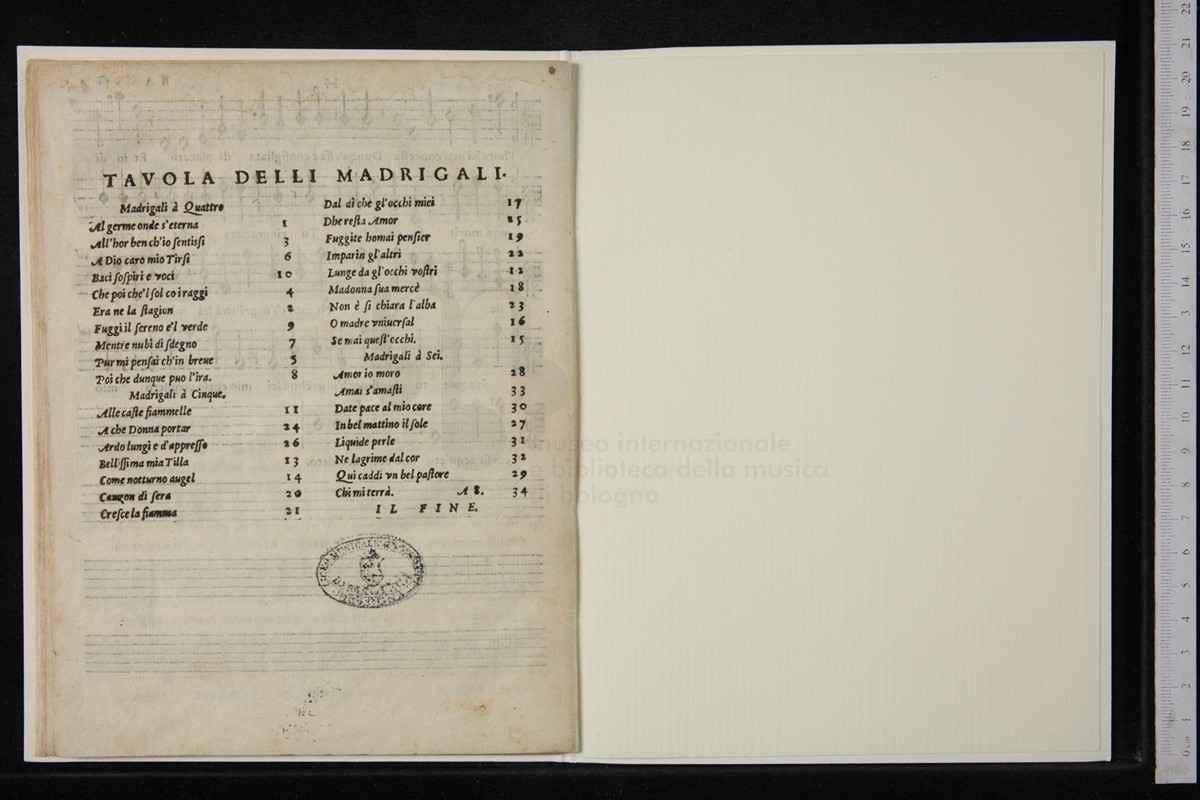 TAVOLA DELLI MADRIGALI.
Madrigali à Quattro
Al germe onde s'eterna 1
All'hor ben ch'io sentissi 3
A Dio caro mio Tirsi 6
Baci sospiri e voci 10
Che poi che'l sol co i raggi 4
Era ne la stagion 2
Fuggi il sereno e'l verde 9
Mentre nubi di sdegno 7
Pur mi pensai ch'in breue 5
Poi che dunque puo l'ira. 8
Madrigali à Cinque.
Alle caste fiammelle 11
A che Donna portar 24
Ardo lungi e d'appresso 26
Bellissima mia Tilla 13
Come notturno augel 14
Canzon di sera 20
Cresce la fiamma 21
Dal dì che gl'occhi miei 17
Dhe resta Amor 25
Fuggite homai pensier 19
Imparin gl'altri 22
Lunge da gl'occhi vostri 12
Madonna sua mercè 18
Non è si chiara l'alba 23
O madre vniuersal 16
Se mai quest'occhi. 15
Madrigali à Sei.
Amor io moro 28
Amai s'amasti 33
Date pace al mio core 30
In bel mattino il sole 27
Liquide perle 31
Ne lagrime dal cor 32
Qui caddi vn bel pastore 29
Chi mi terrà. A 8. 34
IL FINE.
museo internazionale
e biblioteca della musica
di bologna
0 cm 1 2 3 4 5 6 7 8 9 10 11 12 13 14 15 16 17 18 19 20 21 22